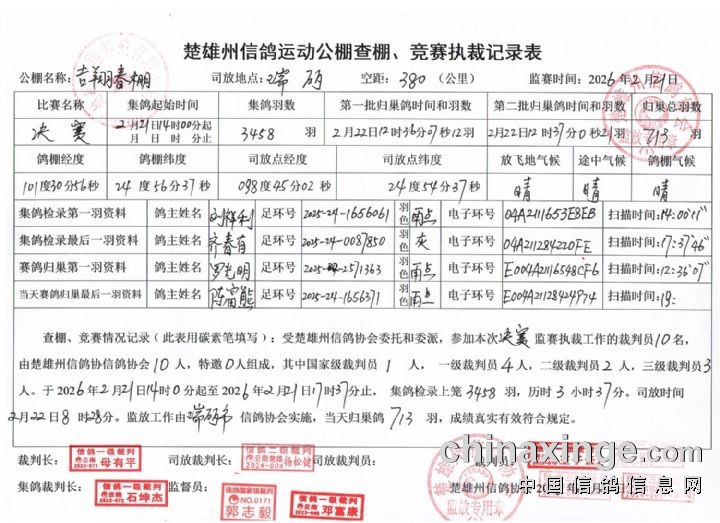 楚雄州信鸽运动公棚查棚、竞赛执裁记录表
公棚名称：吉翔春棚 司放地点：瑞丽 空距：380（公里） 监赛时间：2026年2月21日
比赛名称 集鸽起始时间 集鸽羽数 第一批归巢鸽时间和羽数 第二批归巢鸽时间和羽数 归巢总羽数
决赛 2月21日14时00分起 月 日 时 分止 3458羽 2月22日12时36分07秒12羽 2月22日12时37分0秒21羽 713羽
鸽棚经度 鸽棚纬度 司放点经度 司放点纬度 放飞地气候 途中气候 鸽棚气候
101度30分56秒 24度56分37秒 098度45分02秒 24度54分37秒 晴 晴 晴
集鸽检录第一羽资料 鸽主姓名 足环号 2025-24-1656061 羽色 雨点 电子环号 04A2111653EBEB 扫描时间：14:00'11"
集鸽检录最后一羽资料 鸽主姓名 齐春有 足环号 2025-24-0087850 灰 电子环号 04A211284220FE 扫描时间：17:37'46"
赛鸽归巢第一羽资料 鸽主姓名 罗光明 足环号 羽色 雨点 电子环号 E004A2116548CF6 扫描时间：12:36'07"
当天赛鸽归巢最后一羽资料 鸽主姓名 陈富熊 足环号 2025-24-1656371 雨点 电子环号 E004A21128424974 扫描时间：19:
查棚、竞赛情况记录（此表用碳素笔填写）：受楚雄州信鸽协会委托和委派，参加本次决赛监赛执裁工作的裁判员10名，
由楚雄州信鸽协信鸽协会10人，特邀0人组成，其中国家级裁判员1人，一级裁判员4人，二级裁判员2人，三级裁判员3
人。于2026年2月21日14时0分起至2026年2月21日17时37分止，集鸽检录上笼3458羽，历时3小时37分。司放时间
2月22日8时28分。监放工作由瑞丽市信鸽协会实施，当天归巢鸽713羽，成绩真实有效符合规定。
裁判长： 信鸽一级裁判 云南 2023-071 母有平 司放裁判长： 信鸽二级裁判 云南楚雄 2024-004 杨松健 司放裁判员： 裁判员：
集鸽裁判长： 信鸽一级裁判 云南 2023-072 石坤杰 监督员： 信鸽国家级裁判 NO.0171 郭志毅 信鸽一级裁判 云南 邓富康 楚雄州信鸽协
监放专用章
chinaxinge.com
中国信鸽信息网